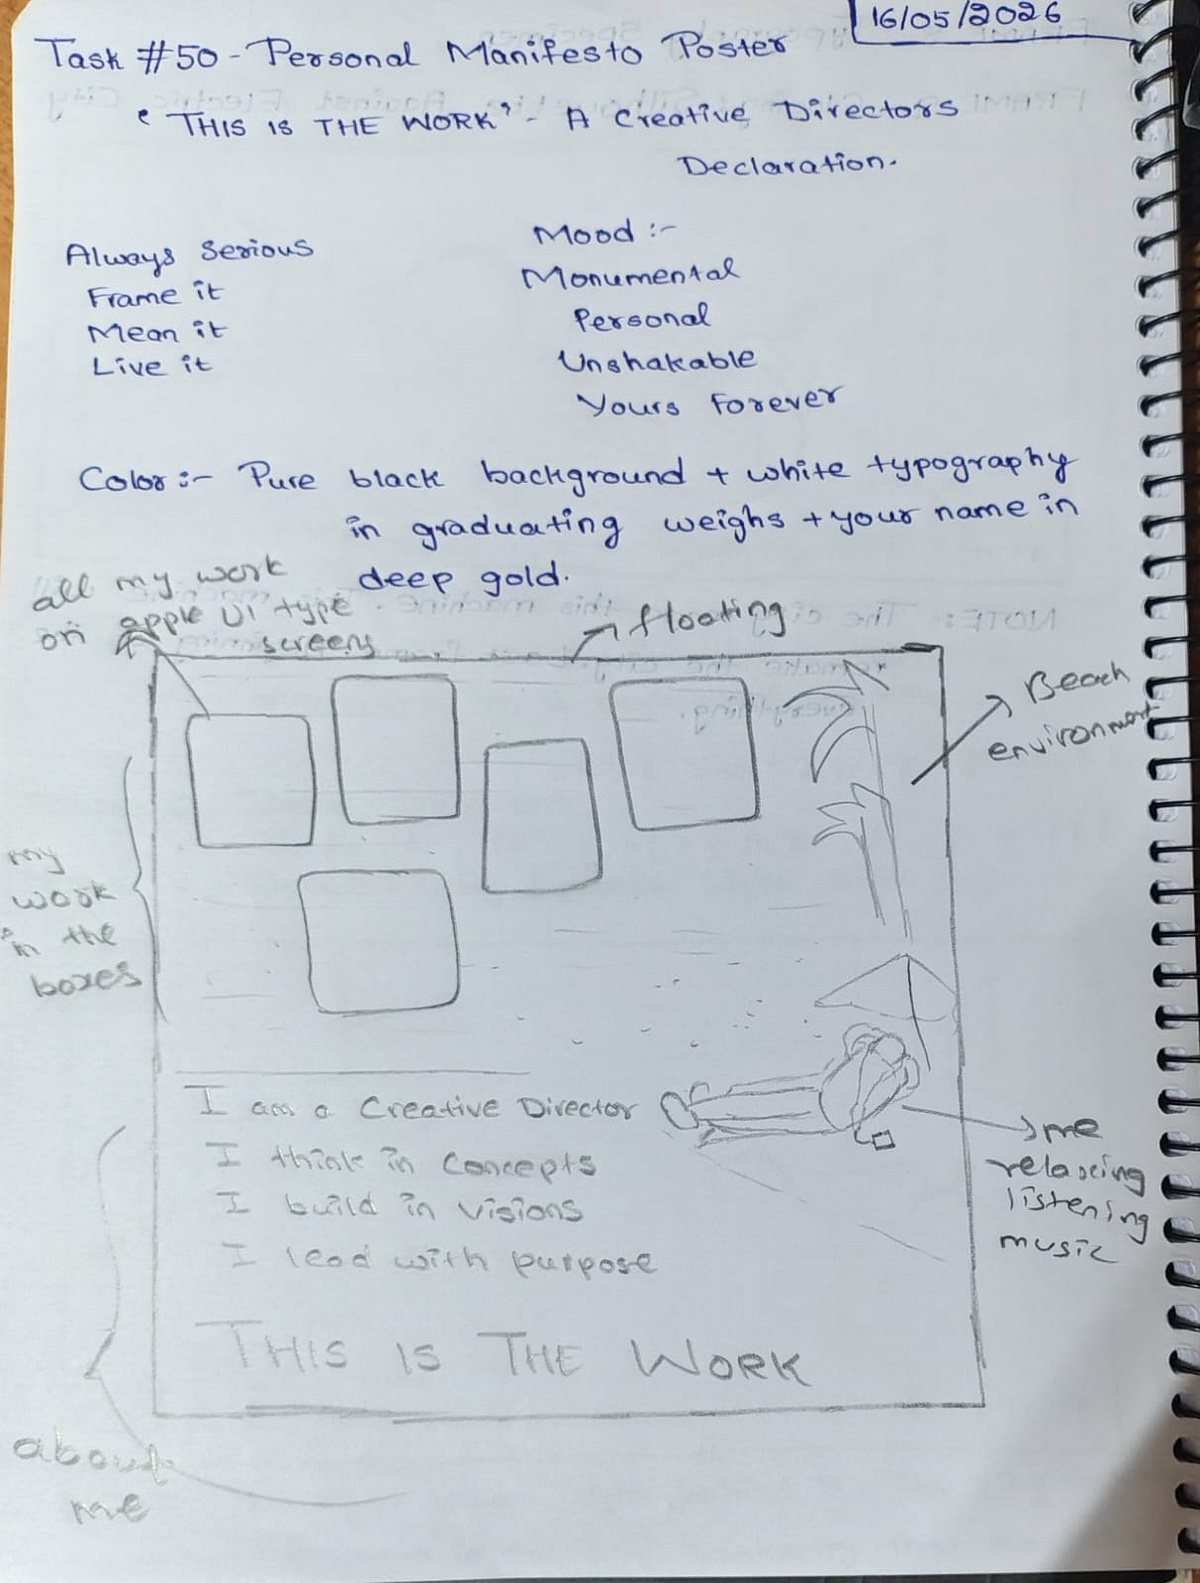 16/05/2026
Task #50 - Personal Manifesto Poster
'THIS IS THE WORK' - A Creative Directors
Declaration.
Always Serious
Frame it
Mean it
Live it
Mood :-
Monumental
Personal
Unshakable
Yours Forever
Color :- Pure black background + white typography
in graduating weighs + your name in
deep gold.
all my work
on apple UI type
screens
floating
Beach
environment
my
work
in the
boxes
I am a Creative Director
I think in Concepts
I build in visions
I lead with purpose
me
relaxing
listening
music
THIS IS THE WORK
about
me